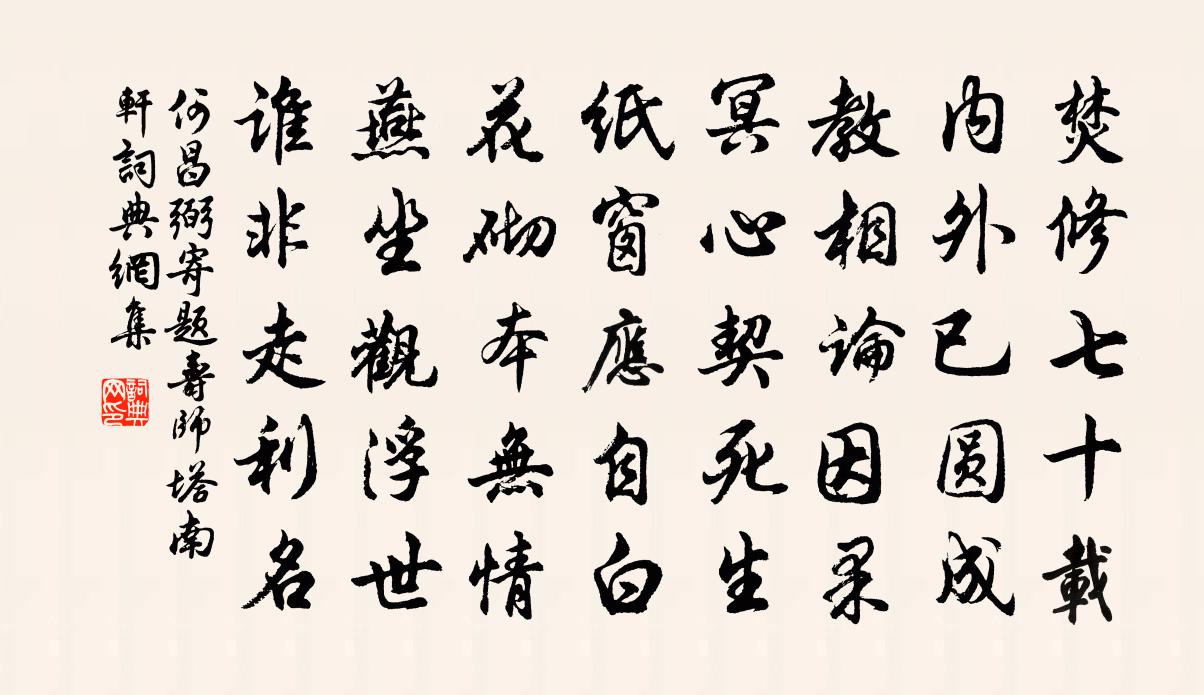 焚修七十載
内外已圆成
教相論因果
冥心契死生
紙窗應自白
花砌本無情
燕坐觀浮世
誰非走利名
何昌弼寄題壽師塔南
軒詞典網集
詞典网印